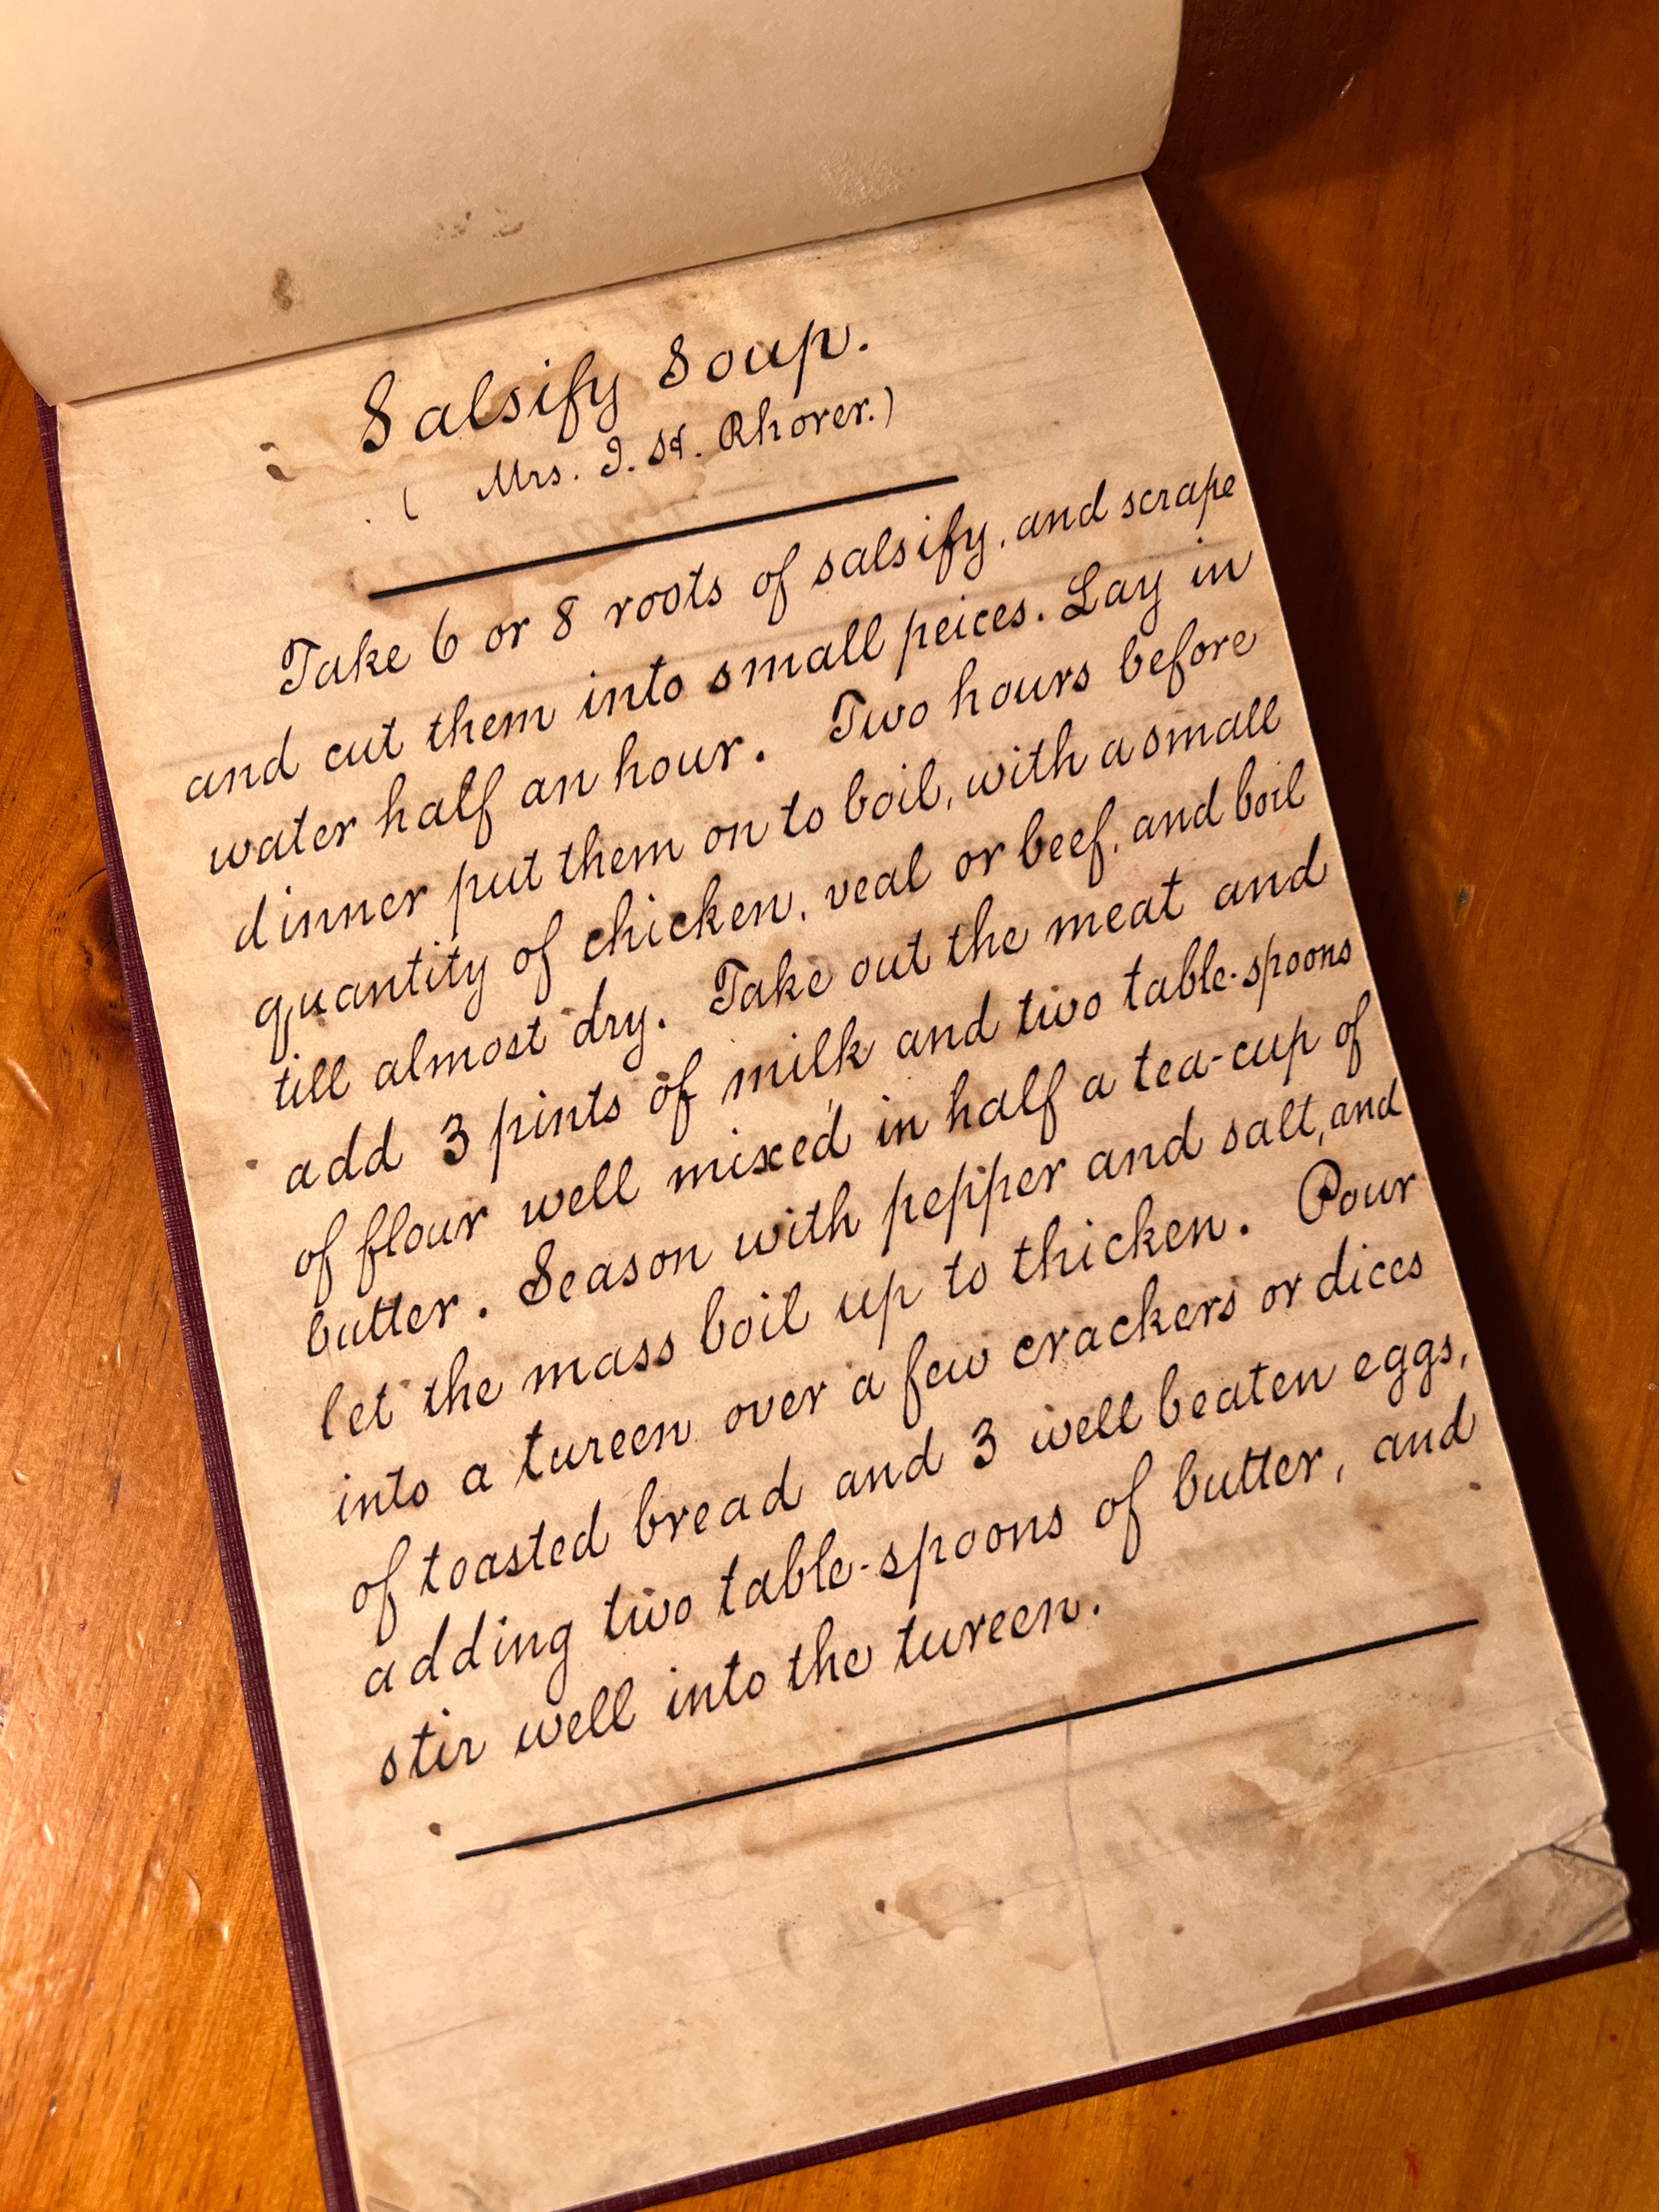 Salsify Soup.
( Mrs. I. H. Rhorer.)
Take 6 or 8 roots of salsify, and scrape
and cut them into small peices. Lay in
water half an hour. Two hours before
dinner put them on to boil, with a small
quantity of chicken, veal or beef, and boil
till almost dry. Take out the meat and
add 3 pints of milk and two table-spoons
of flour well mixed in half a tea-cup of
butter. Season with pepper and salt, and
let the mass boil up to thicken. Pour
into a tureen over a few crackers or dices
of toasted bread and 3 well beaten eggs,
adding two table-spoons of butter, and
stir well into the tureen.